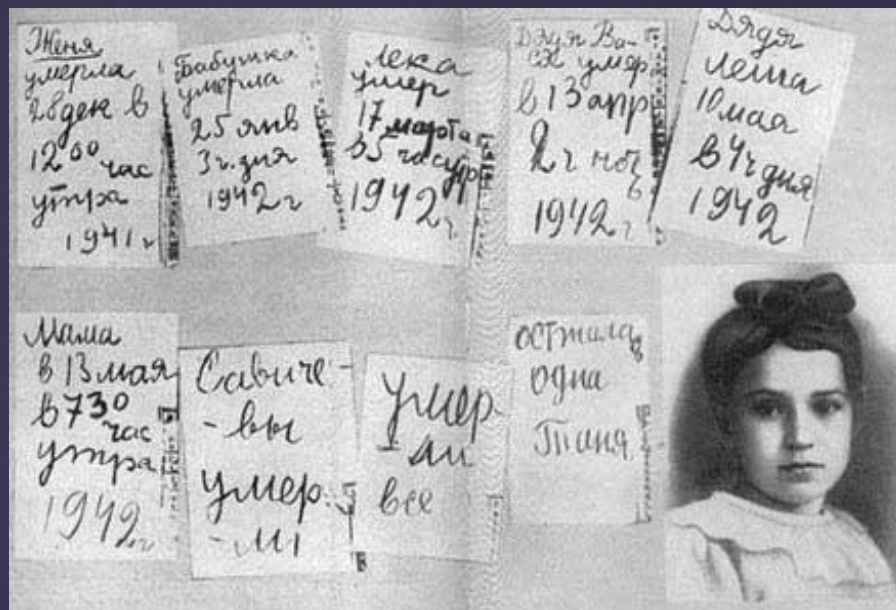 Женя
умерла
28 дек в
12 00 час
утра
1941 г
Бабушка
умерла
25 янв
3 ч. дня
1942 г
Лека
умер
17 марта
в 5 час утр
1942 г
Дядя Ва-
ся умер
в 13 апр
2 ч ночь
1942 г
Дядя
Леша
10 мая
в 4 ч дня
1942
Мама
в 13 мая
в 730
час
утра
1942 г
Савиче-
-вы
умер-
-ли
умер
-ли
все
осталась
одна
Таня